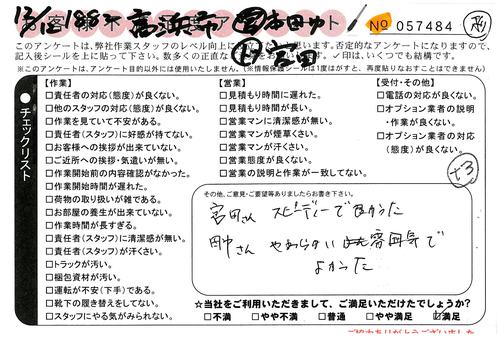 12/12 188 高浜市
宮田
No 057484
このアンケートは、弊社作業スタッフのレベル向上に
思います。否定的なアンケートになりますので、
記入後シールを上に貼って下さい。
✓印は、いくつでも結構です。
※このアンケートは、アンケート目的以外には使用いたしません。(※情報保護シールは1度はがすと、再度貼りなおすことはできません)
チェックリスト
【作業】
□責任者の対応(態度)が良くない。
□他のスタッフの対応(態度)が良くない。
□作業を見ていて不安がある。
□責任者(スタッフ)に好感が持てない。
□お客様への挨拶が出来ていない。
□ご近所への挨拶・気遣いが無い。
□作業開始前の内容確認がなかった。
□作業開始時間が遅れた。
□荷物の取り扱いが雑である。
□お部屋の養生が出来ていない。
□作業時間が長すぎる。
□責任者(スタッフ)に清潔感が無い。
□責任者(スタッフ)が汗くさい。
□トラックが汚い。
□梱包資材が汚い。
□運転が不安(下手)である。
□靴下の履き替えをしてない。
□スタッフにやる気がみられない。
【営業】
□見積もり時間に遅れた。
□見積もり時間が長い。
□営業マンに清潔感が無い。
□営業マンが煙草くさい。
□営業マンが汗くさい。
□営業態度が良くない。
□営業の説明と作業が一致してない。
【受付・その他】
□電話の対応が良くない。
□オプション業者の説明
・作業が良くない。
□オプション業者の対応
(態度)が良くない。
その他、ご意見・ご要望等ありましたらお書き下さい。
宮田さん スピーディーでよかった
田中さん やわらかい 雰囲気で
よかった
☆当社をご利用いただきまして、ご満足いただけたでしょうか?
□不満 □やや不満 □普通 □やや満足 ☑満足
ご協力ありがとうございました